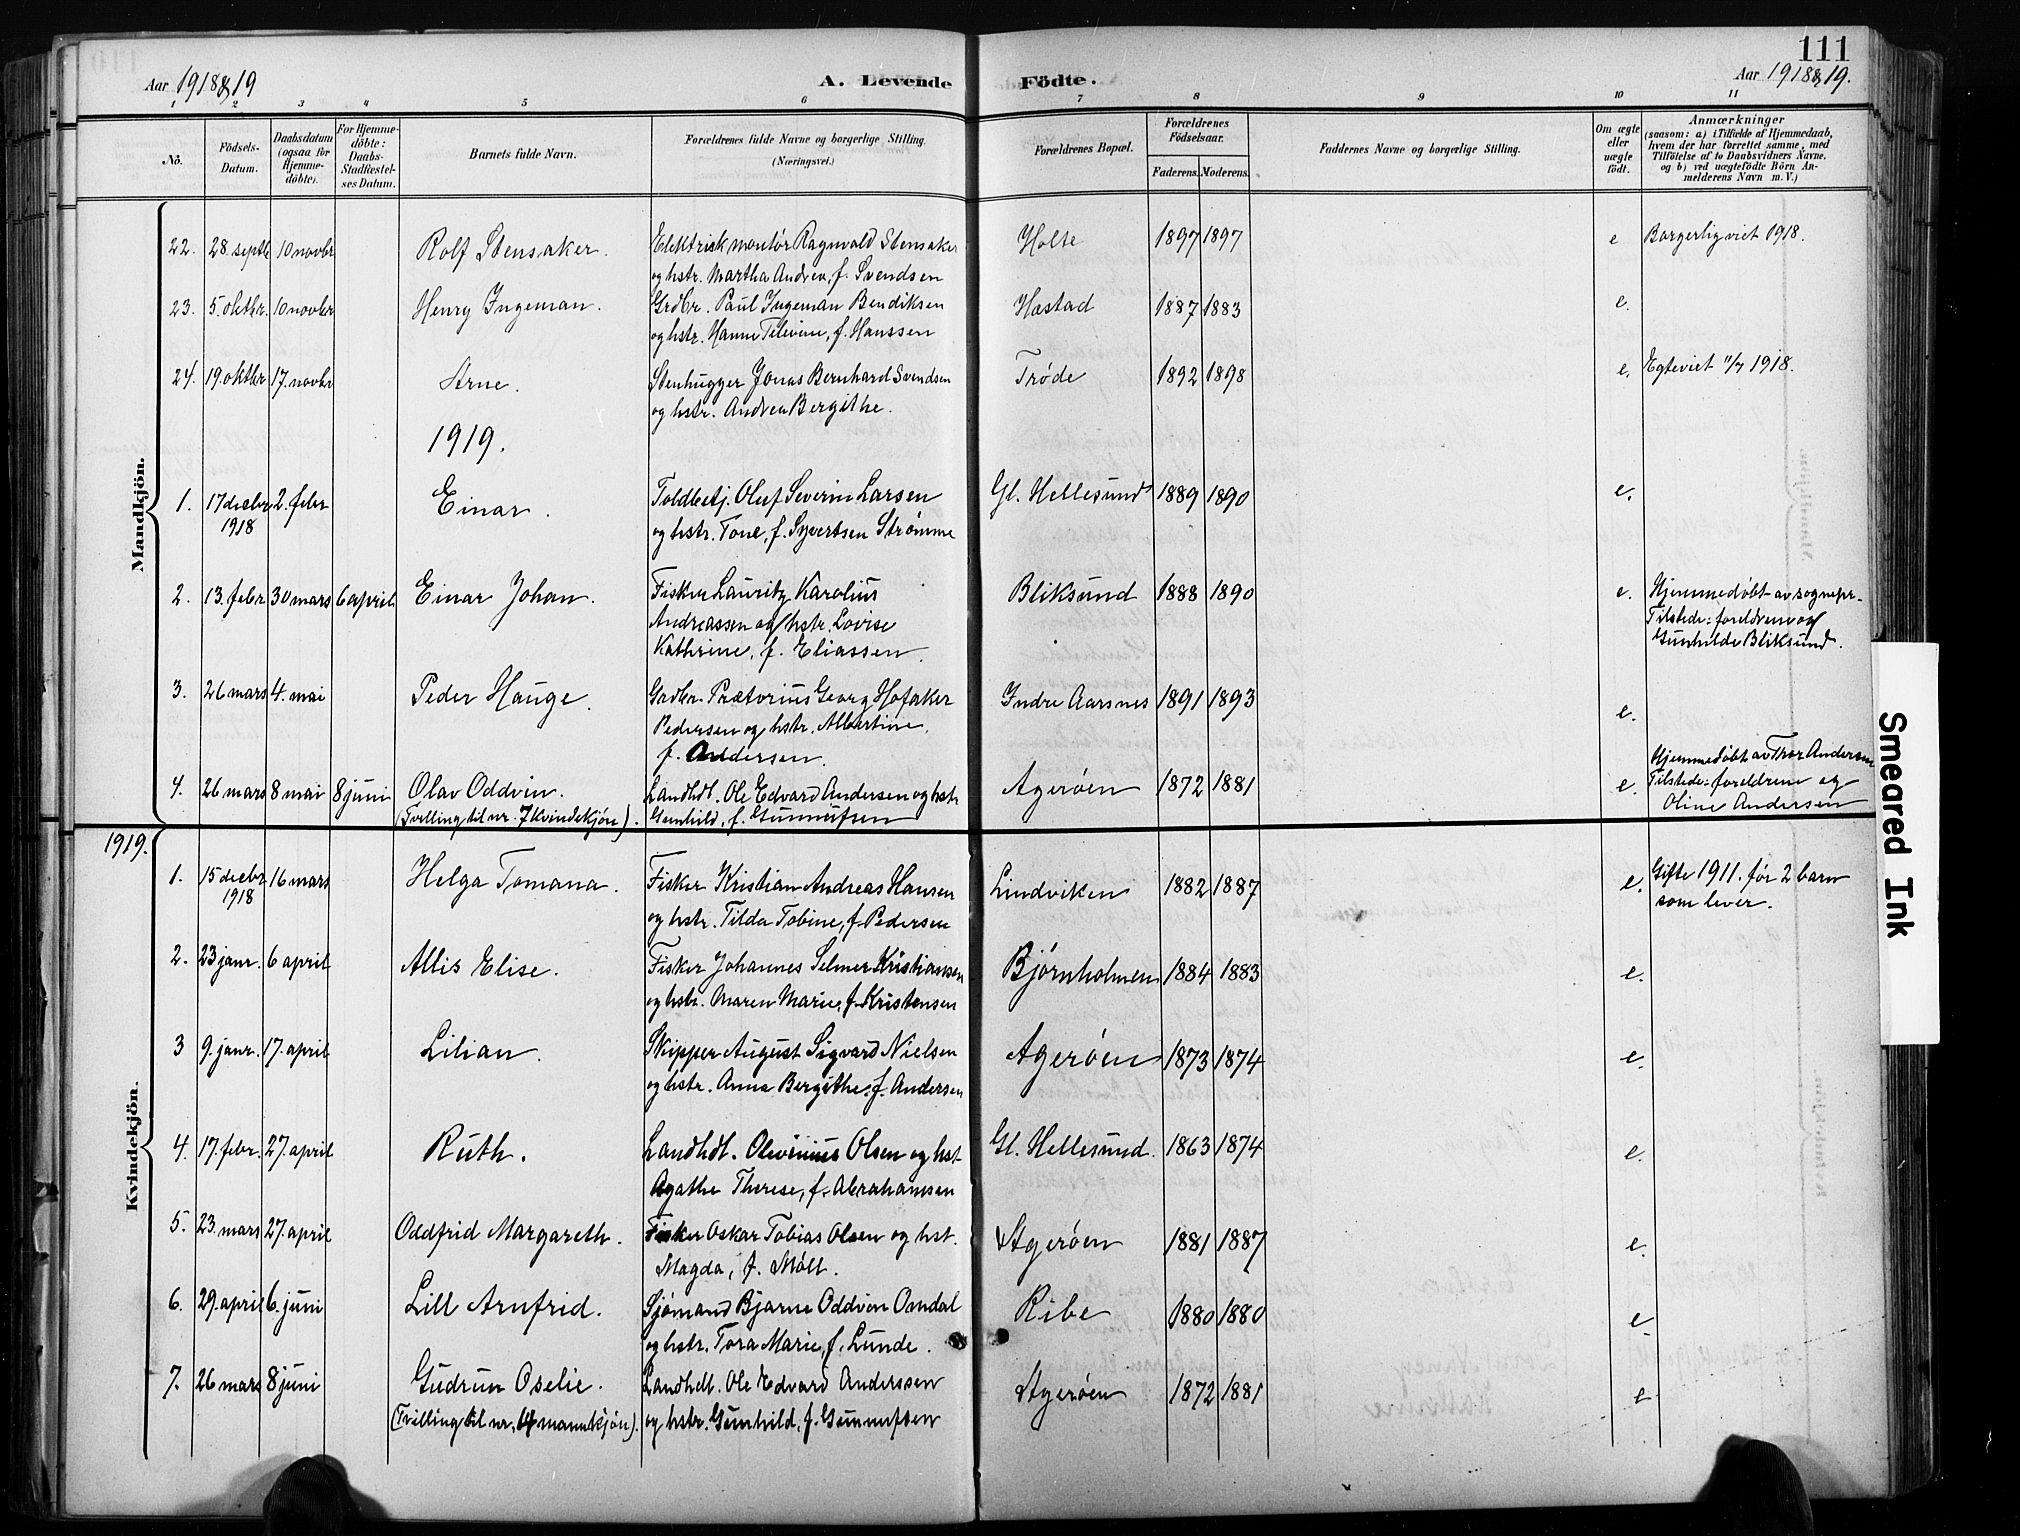 111
Aar 1918 & 19
A. Levende Födte.
Aar 1918 & 19.
1 2 3 4 5 6 7 8 9 10 11
Nö.
Födsels-
Datum.
Daabsdatum
(ogsaa for
Hjemme-
döbte).
For Hjemme-
döbte:
Daabs-
Stadfæstel-
ses Datum.
Barnets fulde Navn.
Forældrenes fulde Navne og borgerlige Stilling.
(Næringsvei.)
Forældrenes Bopæl.
Forældrenes
Födselsaar.
Faderens. Moderens.
Faddernes Navne og borgerlige Stilling.
Om ægte
eller
uægte
födt.
Anmærkninger
(saasom: a) i Tilfælde af Hjemmedaab,
hvem der har forrettet samme, med
Tilföielse af to Daabsvidners Navne,
og b) ved uægtefödte Börn An-
melderens Navn m. V.)
Mandkjön.
22. 28. septb 10 novbr Rolf Stensaker. Elektrisk montör Ragnvald Stensaker Holte 1897 1897 e Borgerlig viet 1918.
og hstr. Martha Andrea, f. Svendsen
23. 5. oktbr. 10 novbr Henry Ingeman. Grdbr. Paul Ingeman Bendiksen Hæstad 1887 1883 e.
og hstr. Hanne Televine, f. Hanssen
24. 19. oktbr 17. novbr Arne. Stenhugger Jonas Bernhard Svendsen Trøde 1892 1898 e. Egteviet 11/7 1918.
og hstr. Andrea Bergithe.
1919.
1. 17 decbr 2. febr Einar. Toldbetj. Oluf Severin Larsen Gl. Hellesund 1889 1890 e.
1918 og hstr. Tone, f. Syvertsen Strømme
2. 13. febr 30 mars 6 april Einar Johan. Fisker Lauritz Karolius Bliksund 1888 1890 e. Hjemmedøbt av sognepr.
Andreassen og hstr. Lovise Tilstede: foreldrene og
Kathrine, f. Eliassen. Gunhilde Bliksund.
3. 26 mars 4. mai Peder Hauge. Grdbr. Prætorius Georg Hofaker Indre Aarsnes 1891 1893 e.
Pedersen og hstr. Albertine,
f. Andersen.
4. 26 mars 8 mai 8 juni Olav Oddvin. Landhdl. Ole Edvard Andersen og hstr Agerøen 1872 1881 e. Hjemmedøbt av Thor Andersen
(Tvilling til nr. 7 kvindekjøn). Gunhild, f. Gunnufsen Tilstede: foreldrene og
Oline Andersen
1919.
Kvindekjön.
1. 15 decbr 16 mars Helga Tomana. Fisker Kristian Andreas Hansen Lindviken 1882 1887 e. Gifte 1911. før 2 barn
1918 og hstr. Tilda Tobine, f. Pedersen som lever.
2. 23 janr. 6 april Allis Elise. Fisker Johannes Selmer Kristiansen Bjørnholmen 1884 1883 e.
og hstr. Maren Marie, f. Kristensen
3 9. janr. 17. april Lilian. Skipper August Sigvard Nielsen Agerøen 1873 1874 e.
og hstr. Anna Bergithe, f. Andersen
4. 17. febr. 27. april Ruth. Landhdl. Olevinius Olsen og hst Gl. Hellesund. 1863 1874 e.
Agathe Therese, f. Abrahamsen
5. 23. mars 27. april Oddfrid Margareth. Fisker Oskar Tobias Olsen og hst. Agerøen 1881 1887 e.
Magda, f. Möll.
6. 29. april 6. juni Lill Arnfrid. Sjømand Bjarne Oddvon Omdal Ribe 1880 1880 e.
og hstr. Tora Marie, f. Lunde.
7. 26 mars 8 juni Gudrun Oselie. Landhdl. Ole Edvard Anderssen Agerøen 1872 1881 e
(Tvilling til nr. 4 mannkjøn). og hstr. Gunhild, f. Gunnufsen
Smeared Ink